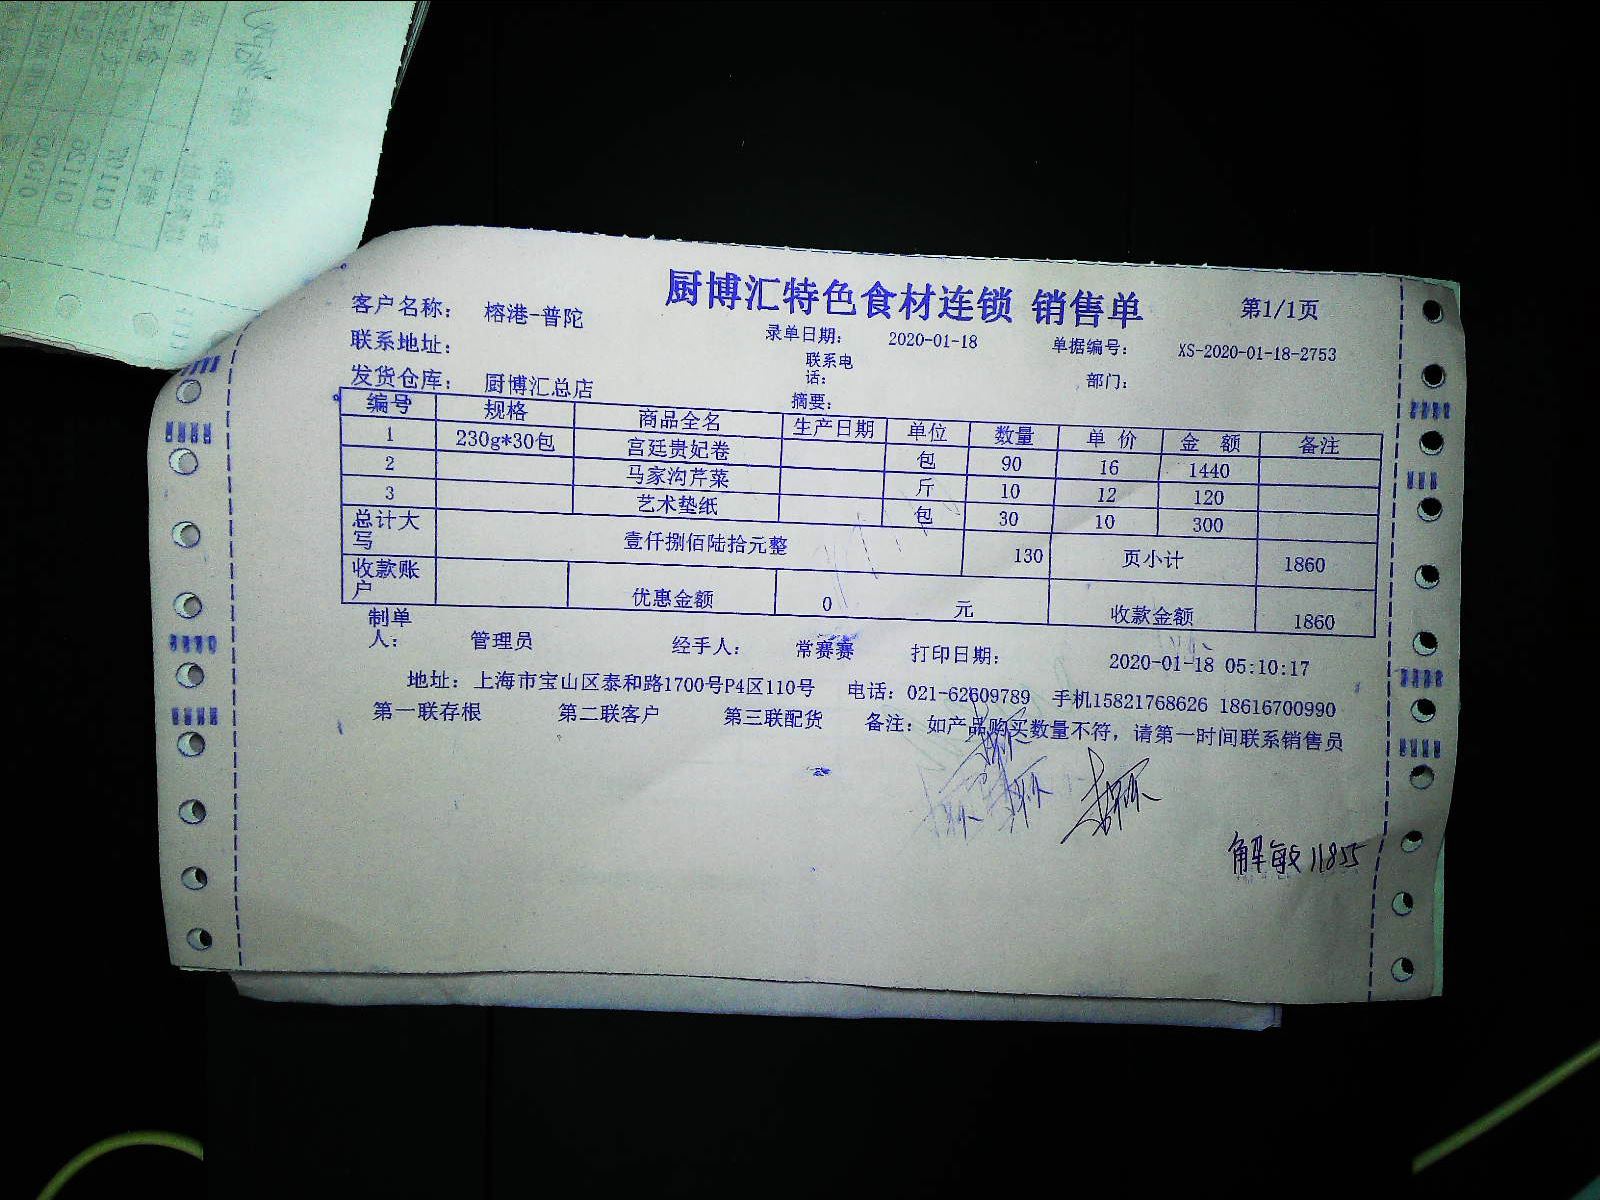 厨博汇特色食材连锁 销售单 第1/1页
客户名称： 榕港-普陀
录单日期： 2020-01-18 单据编号： XS-2020-01-18-2753
联系地址： 联系电话： 部门：
发货仓库： 厨博汇总店 摘要：
编号 规格 商品全名 生产日期 单位 数量 单 价 金 额 备注
1 230g*30包 宫廷贵妃卷 包 90 16 1440
2 马家沟芹菜 斤 10 12 120
3 艺术垫纸 包 30 10 300
总计大写 壹仟捌佰陆拾元整 130 页小计 1860
收款账户 优惠金额 0 元 收款金额 1860
制单人： 管理员 经手人： 常赛赛 打印日期： 2020-01-18 05:10:17
地址：上海市宝山区泰和路1700号P4区110号 电话：021-62609789 手机15821768626 18616700990
第一联存根 第二联客户 第三联配货 备注：如产品购买数量不符，请第一时间联系销售员
解敏 11855